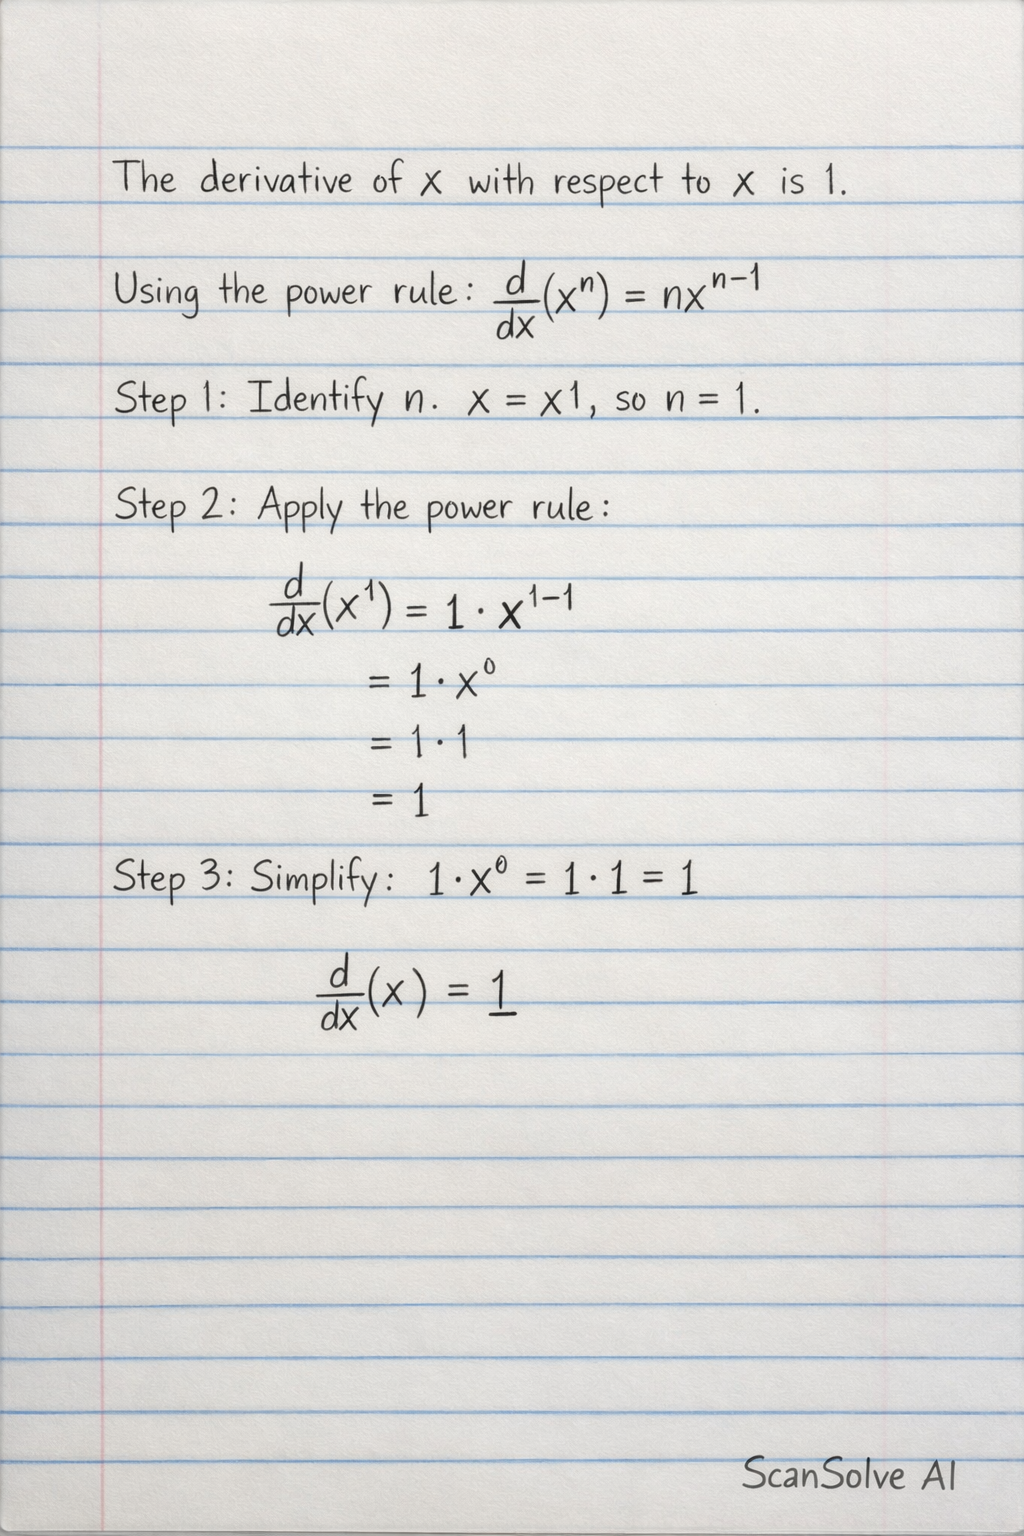 The derivative of x with respect to x is 1.
Using the power rule: d/dx(xⁿ) = nxⁿ⁻¹
Step 1: Identify n. x = x1, so n = 1.
Step 2: Apply the power rule:
d/dx(x¹) = 1 · x¹⁻¹
= 1 · x⁰
= 1 · 1
= 1
Step 3: Simplify: 1 · x⁰ = 1 · 1 = 1
d/dx(x) = 1
ScanSolve AI